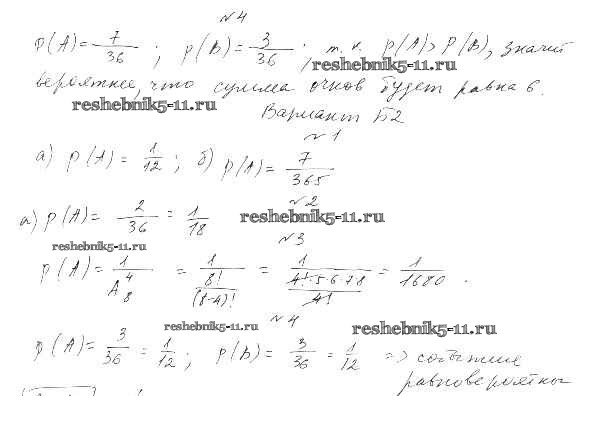 №4
P(A)=7/36; P(B)=3/36; т.к. P(A)>P(B), значит
reshebnik5-11.ru
вероятнее, что сумма очков будет равна 6.
reshebnik5-11.ru
Вариант Б2
№1
а) P(A)=1/12; б) P(A)=7/365
№2
а) P(A)=2/36=1/18
reshebnik5-11.ru
№3
reshebnik5-11.ru
P(A)=1/A₈⁴=1/(8!/(8-4)!)=1/(4!·5·6·7·8/4!)=1/1680.
№4
reshebnik5-11.ru
reshebnik5-11.ru
P(A)=3/36=1/12; P(B)=3/36=1/12 => события
равновероятны